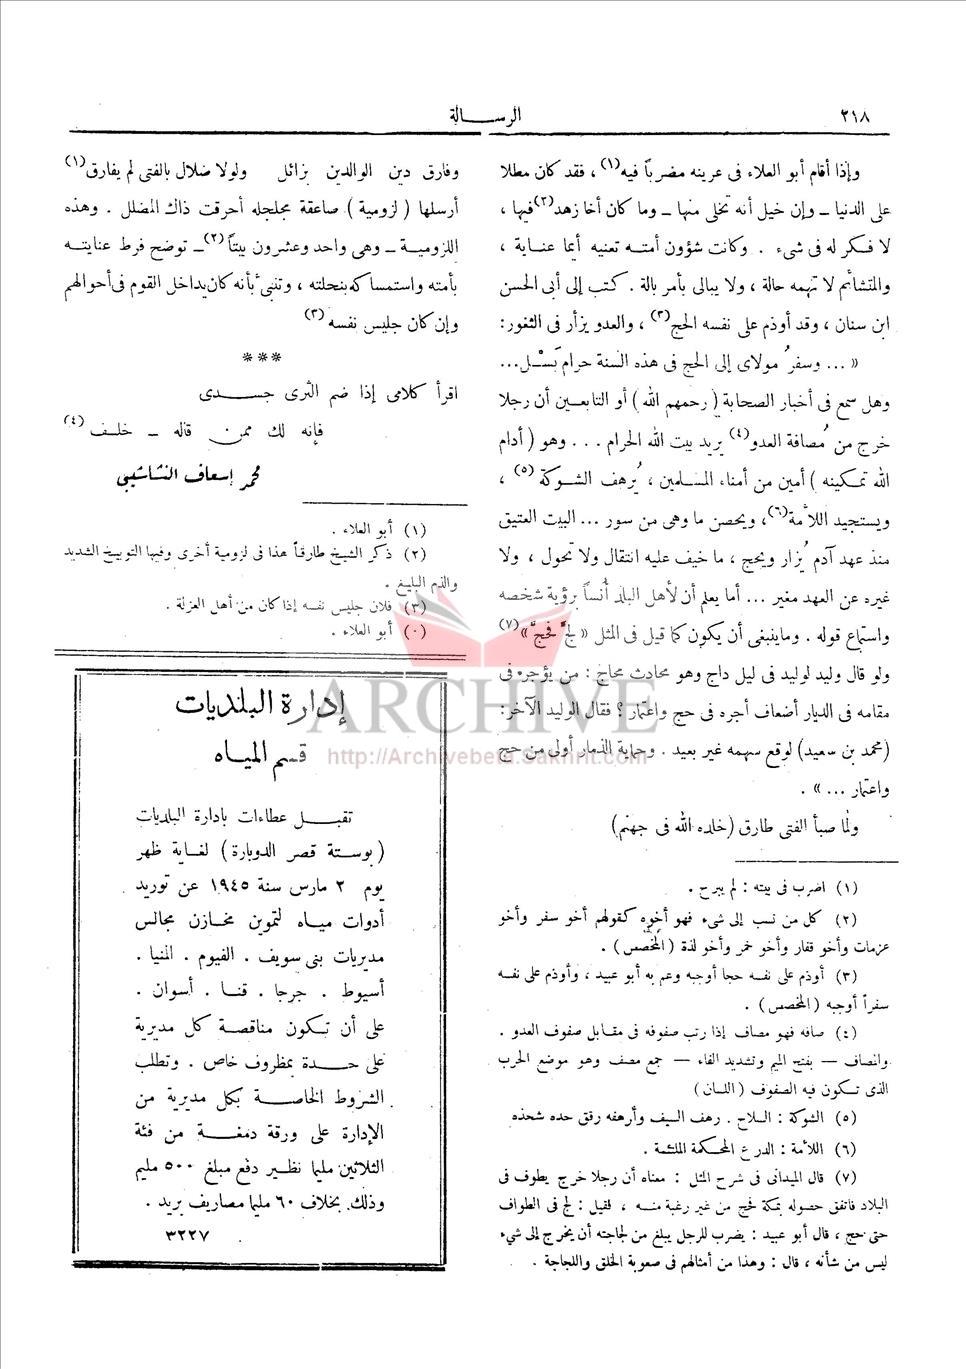 ٢١٨
الرسالة
وإذا أقام أبو العلاء فى عرينه مضرباً فيه(١) ، فقد كان مطلا
على الدنيا ــ وإن خيل أنه تخلى منها ــ وما كان أخا زهد(٢) فيها ،
لا فكر له فى شىء . وكانت شؤون أمتـه تعنيه أيما عناية ،
والمتشائم لا تهمه حالة ، ولا يبالى بأمر بالة . كتب إلى أبى الحسن
ابن سنان ، وقد أوذم على نفسه الحج(٣) ، والعدو يزأر فى الثغور:
« ... وسفرُ مولاى إلى الحج فى هذه السنة حرام بَسْـل...
وهل سمع فى أخبار الصحابة (رحمهم الله) أو التابعـين أن رجلا
خرج من مُصافة العدو(٤) يريد بيت الله الحرام ... وهو (أدام
الله تمكينه) أمين من أمناء المسلمين ، يُرهف الشوكة (٥) ،
ويستجيد اللأمة(٦)، ويحصن ما وهى من سور ... البيت العتيق
منذ عهد آدم يُزار ويحج ، ما خيف عليه انتقال ولا تحول ، ولا
غيره عن العهد مغير ... أما يعلم أن لأهل البلد أُنساً برؤية شخصه
واستماع قوله . وماينبغى أن يكون كما قيل فى المثل « لجَّ فحجَّ » (٧)
ولو قال وليد لوليد فى ليل داج وهو محادث محاج : من يؤجره فى
مقامه فى الديار أضعاف أجره فى حج واعتمار ؟ فقال الوليد الآخر:
(محمد بن سعيد) لوقع سهمه غير بعيد . وحماية الذمار أولى من حج
واعتمار ... » .
ولما صبأ الفتى طارق (خلده الله فى جهنم)
(١) اضرب فى بيته : لم يبرح .
(٢) كل من نسب إلى شىء فهو أخوه كقولهم أخو سفر وأخو
عزمات وأخو قفار وأخو خمر وأخو لذة (المخصص) .
(٣) أوذم على نفسه حجا أوجبه وعم به أبو عبيد ، وأوذم على نفسه
سفراً أوجبه (المخصص) .
(٤) صافه فهو مصاف إذا رتب صفوفه فى مقابل صفوف العدو .
وانصاف — بفتح الميم وتشديد الفاء — جمع مصف وهو موضع الحرب
الذى تكون فيه الصفوف (اللسان)
(٥) الشوكة : السلاح . رهف السيف وأرهفه رقق حده شحذه
(٦) اللأمة : الدرع المحكمة الملتئمة .
(٧) قال الميدانى فى شرح المثل : معناه أن رجلا خرج يطوف فى
البلاد فاتفق حصوله بمكة فحج من غير رغبة منـه ، فقيل : لج فى الطواف
حتى حج ، قال أبو عبيد : يضرب للرجل يبلغ من لجاجته أن يخرج إلى شىء
ليس من شأنه ، قال : وهذا من أمثالهم فى صعوبة الخلق واللجاجة .
وفارق دين الوالدين بزائل ولولا ضلال بالفتى لم يفارق(١)
أرسلها (لزومية) صاعقة مجلجله أحرقت ذاك المضلل . وهذه
اللزوميـة ــ وهى واحد وعشرون بيتاً(٢) ــ توضح فرط عنايتـه
بأمته واستمساكه بنحلته ، وتنبىء بأنه كان يداخل القوم فى أحوالهم
وإن كان جليس نفسه(٣)
***
اقرأ كلامى إذا ضم الثرى جسـدى
فإنه لك ممن قاله ــ خلـف (٤)
محمد إسعاف النشاشيبى
(١) أبو العلاء .
(٢) ذكر الشيخ طارقاً هذا فى لزومية أخرى وفيها التوبيخ الشديد
والذم البليغ .
(٣) فلان جليس نفسه إذا كان من أهل العزلة .
(٠) أبو العلاء .
إدارة البلديات
قسم المياه
تقبـل عطاءات بادارة البلديات
(بوستة قصر الدوبارة) لغاية ظهر
يوم ٢ مارس سنة ١٩٤٥ عن توريد
أدوات ميـاه لتموين مخازن مجالس
مديريات بنى سويف . الفيوم . المنيا .
أسيوط . جرجا . قنـا . أسوان .
على أن تكون مناقصة كل مديرية
على حـدة بمظروف خاص . وتطلب
الشروط الخاصـة بكل مديرية من
الإدارة على ورقة دمغـة من فئة
الثلاثين مليما نظير دفع مبلغ ٥٠٠ مليم
وذلك بخلاف ٦٠ مليما مصاريف بريد .
٣٢٢٧
ARCHIVE
http://Archivebeta.Sakhrit.com